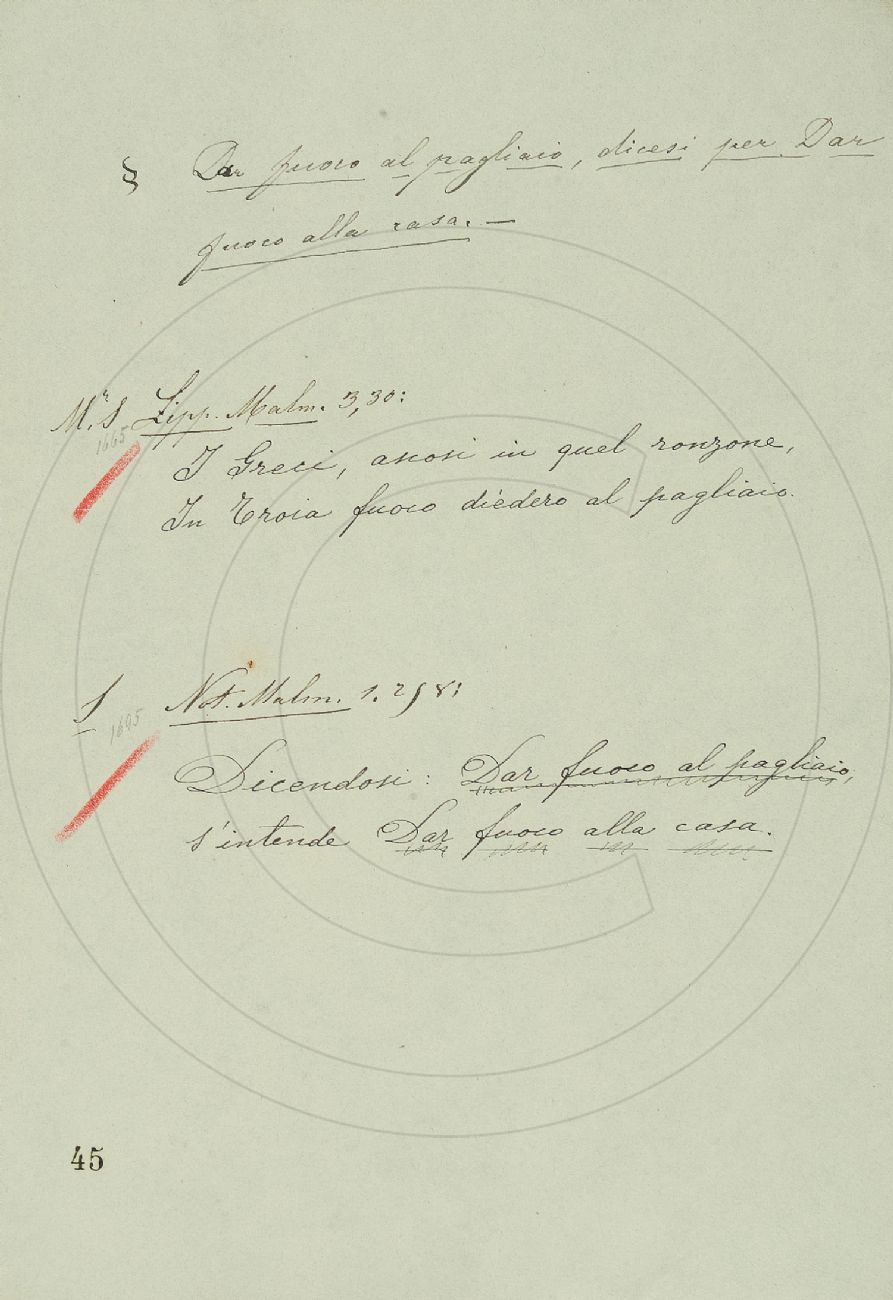 § Dar fuoco al pagliaio, dicesi per Dar
fuoco alla casa. —
Mr. S Lipp. Malm. 3,30:
1665
I Greci, ascosi in quel ronzone,
In Troia fuoco diedero al pagliaio.
S Not. Malm. 1. 258:
1695
Dicendosi: Dar fuoco al pagliaio,
s'intende Dar fuoco alla casa.
45